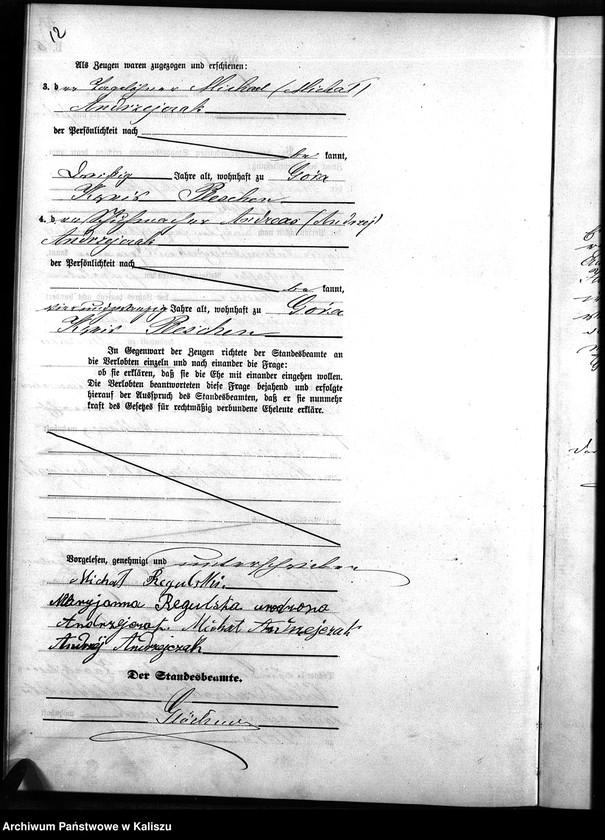 12
Als Zeugen waren zugezogen und erschienen:
3. der Tagelöhner Michael (Michał)
Andrzejczak
der Persönlichkeit nach
be kannt,
dreißig Jahre alt, wohnhaft zu Góra
Kreis Pleschen
4. der Andreas (Andrzej)
Andrzejczak
der Persönlichkeit nach
be kannt,
vierundzwanzig Jahre alt, wohnhaft zu Góra
Kreis Pleschen
In Gegenwart der Zeugen richtete der Standesbeamte an
die Verlobten einzeln und nach einander die Frage:
ob sie erklären, daß sie die Ehe mit einander eingehen wollen.
Die Verlobten beantworteten diese Frage bejahend und erfolgte
hierauf der Ausspruch des Standesbeamten, daß er sie nunmehr
kraft des Gesetzes für rechtmäßig verbundene Eheleute erkläre.
Vorgelesen, genehmigt und unterschrieben
Michał Regulski
Maryjanna Regulska urodzona
Andrzejczak Michał Andrzejczak
Andrzej Andrzejczak
Der Standesbeamte.
Archiwum Państwowe w Kaliszu